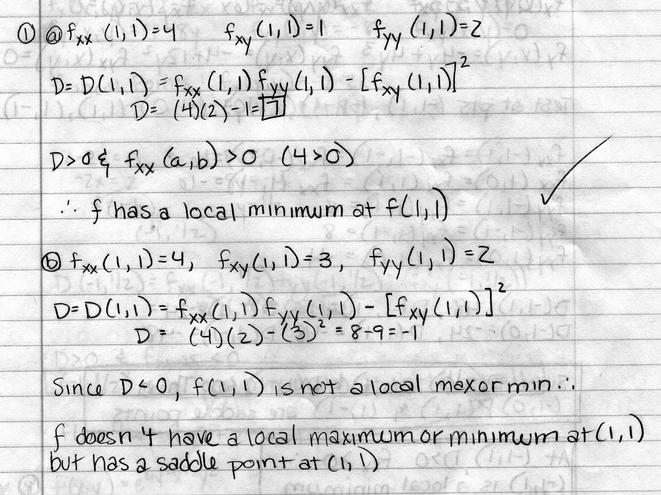 ① ⓐ f_xx (1,1)=4 f_xy (1,1)=1 f_yy (1,1)=2
D= D(1,1) = f_xx (1,1) f_yy (1,1) - [f_xy (1,1)]²
D= (4)(2)-1=7
D>0 & f_xx (a,b) >0 (4>0)
∴ f has a local minimum at f(1,1)
ⓑ f_xx (1,1)=4, f_xy (1,1)=3, f_yy (1,1)=2
D=D(1,1) = f_xx (1,1) f_yy (1,1) - [f_xy (1,1)]²
D = (4)(2)-(3)² = 8-9=-1
Since D<0, f(1,1) is not a local max or min ∴
f doesn't have a local maximum or minimum at (1,1)
but has a saddle point at (1,1)